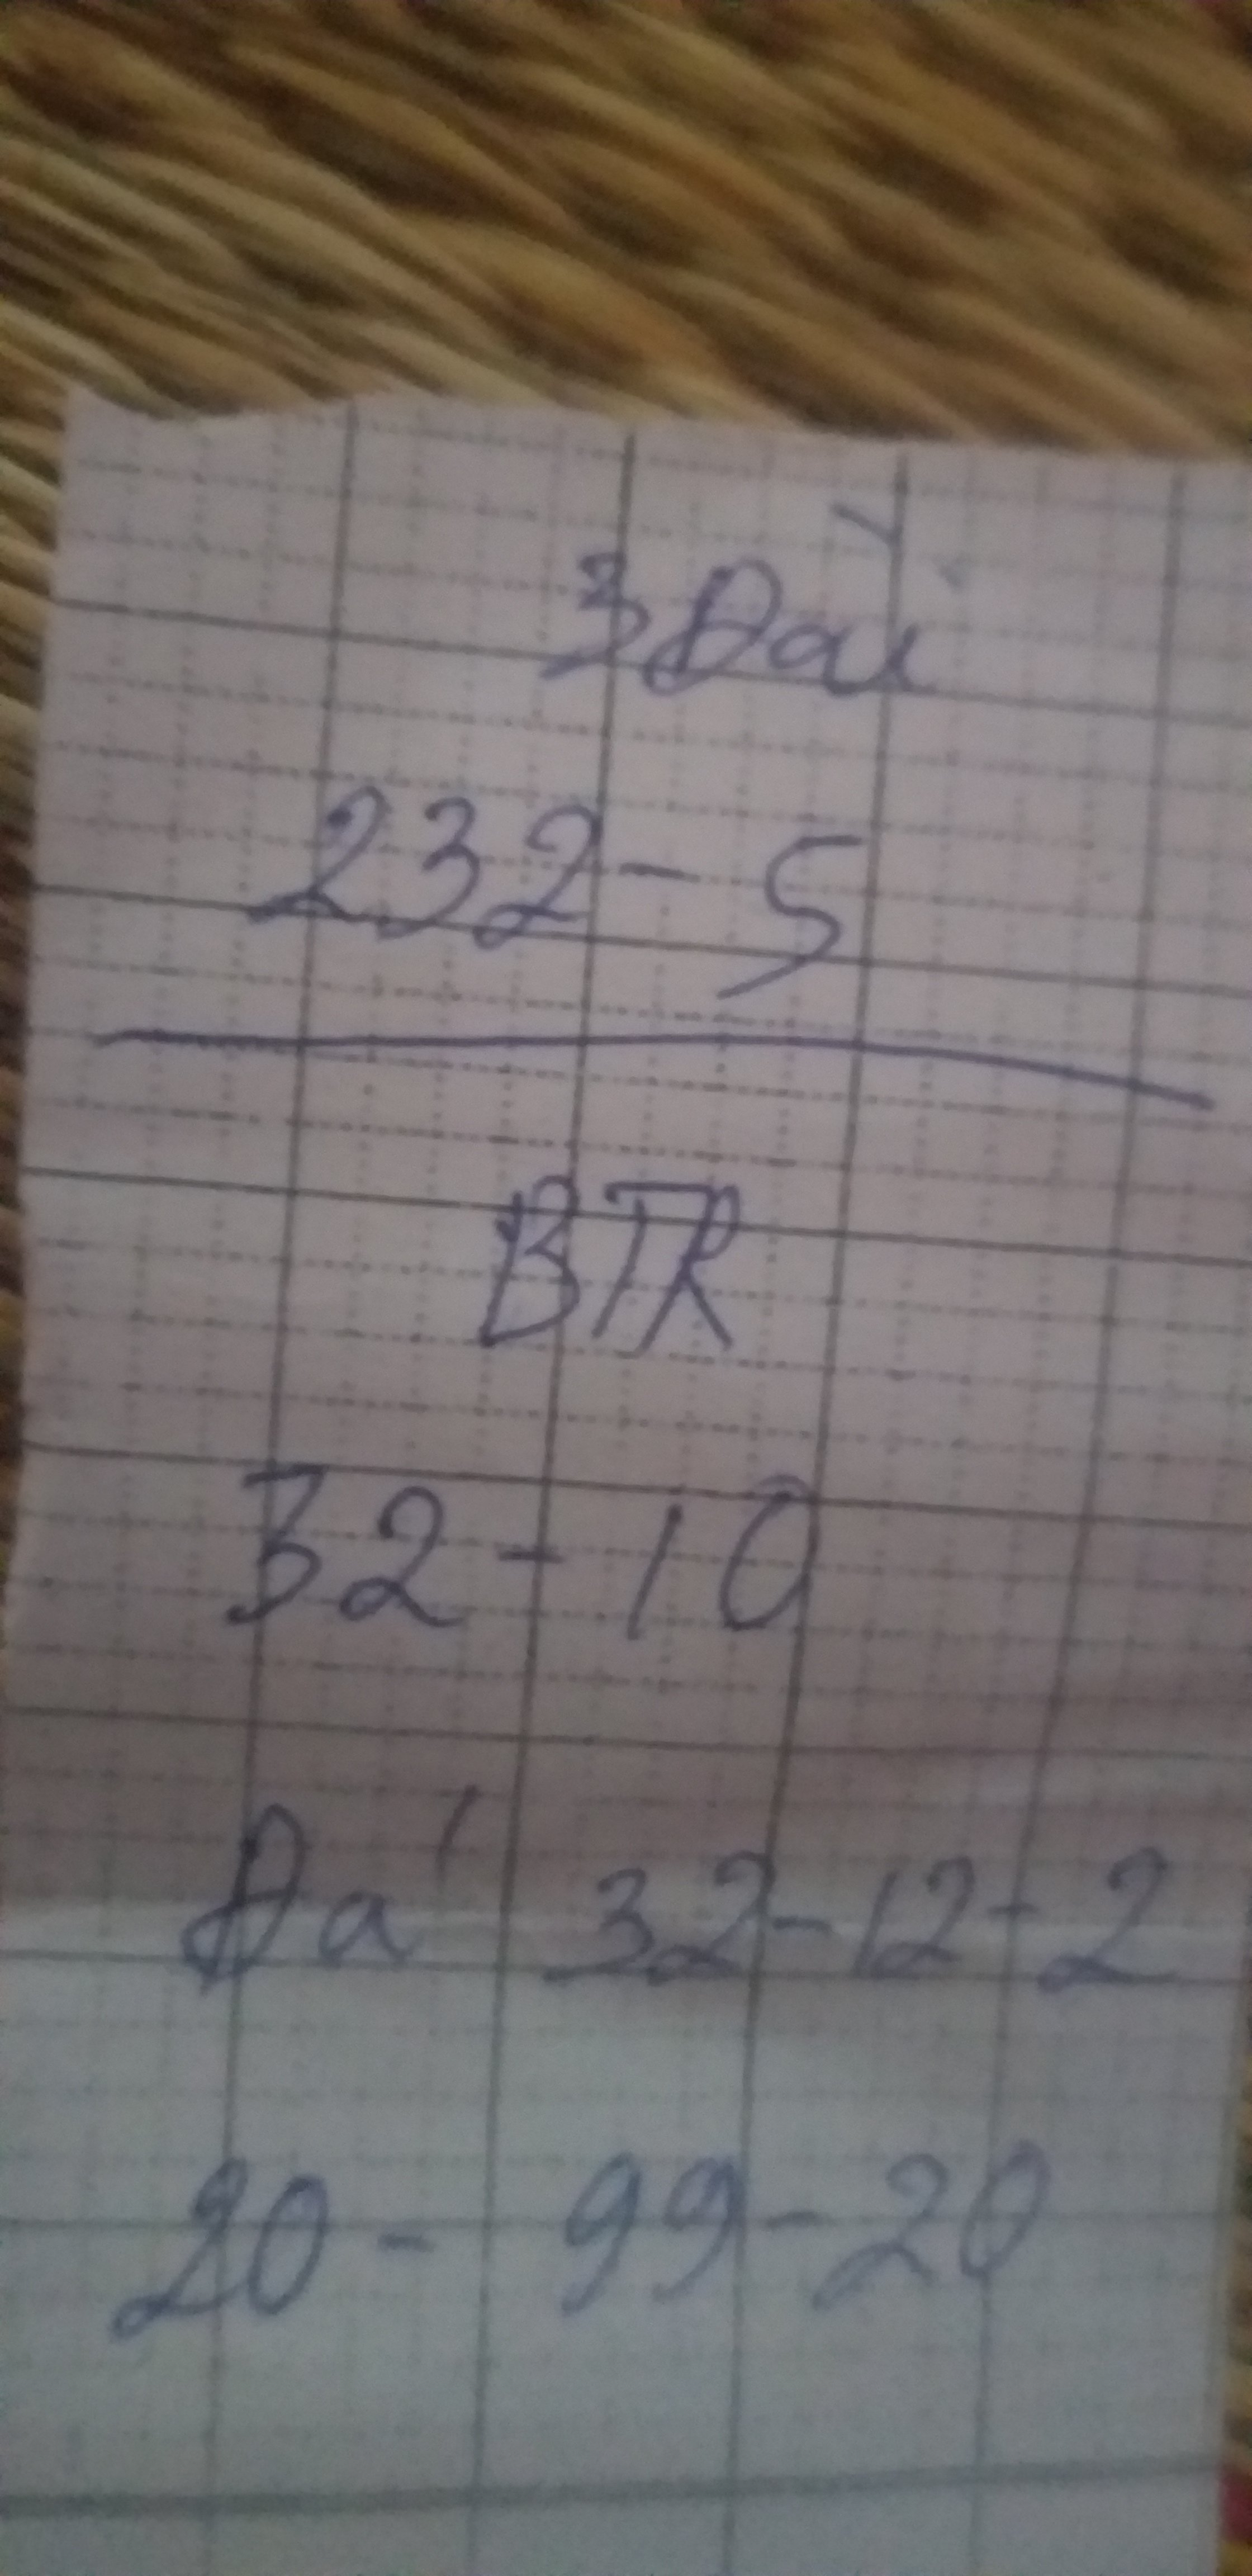 3 Đài
232 - 5
BTR
32 - 10
Đá 32 - 12 - 2
20 - 99 - 20